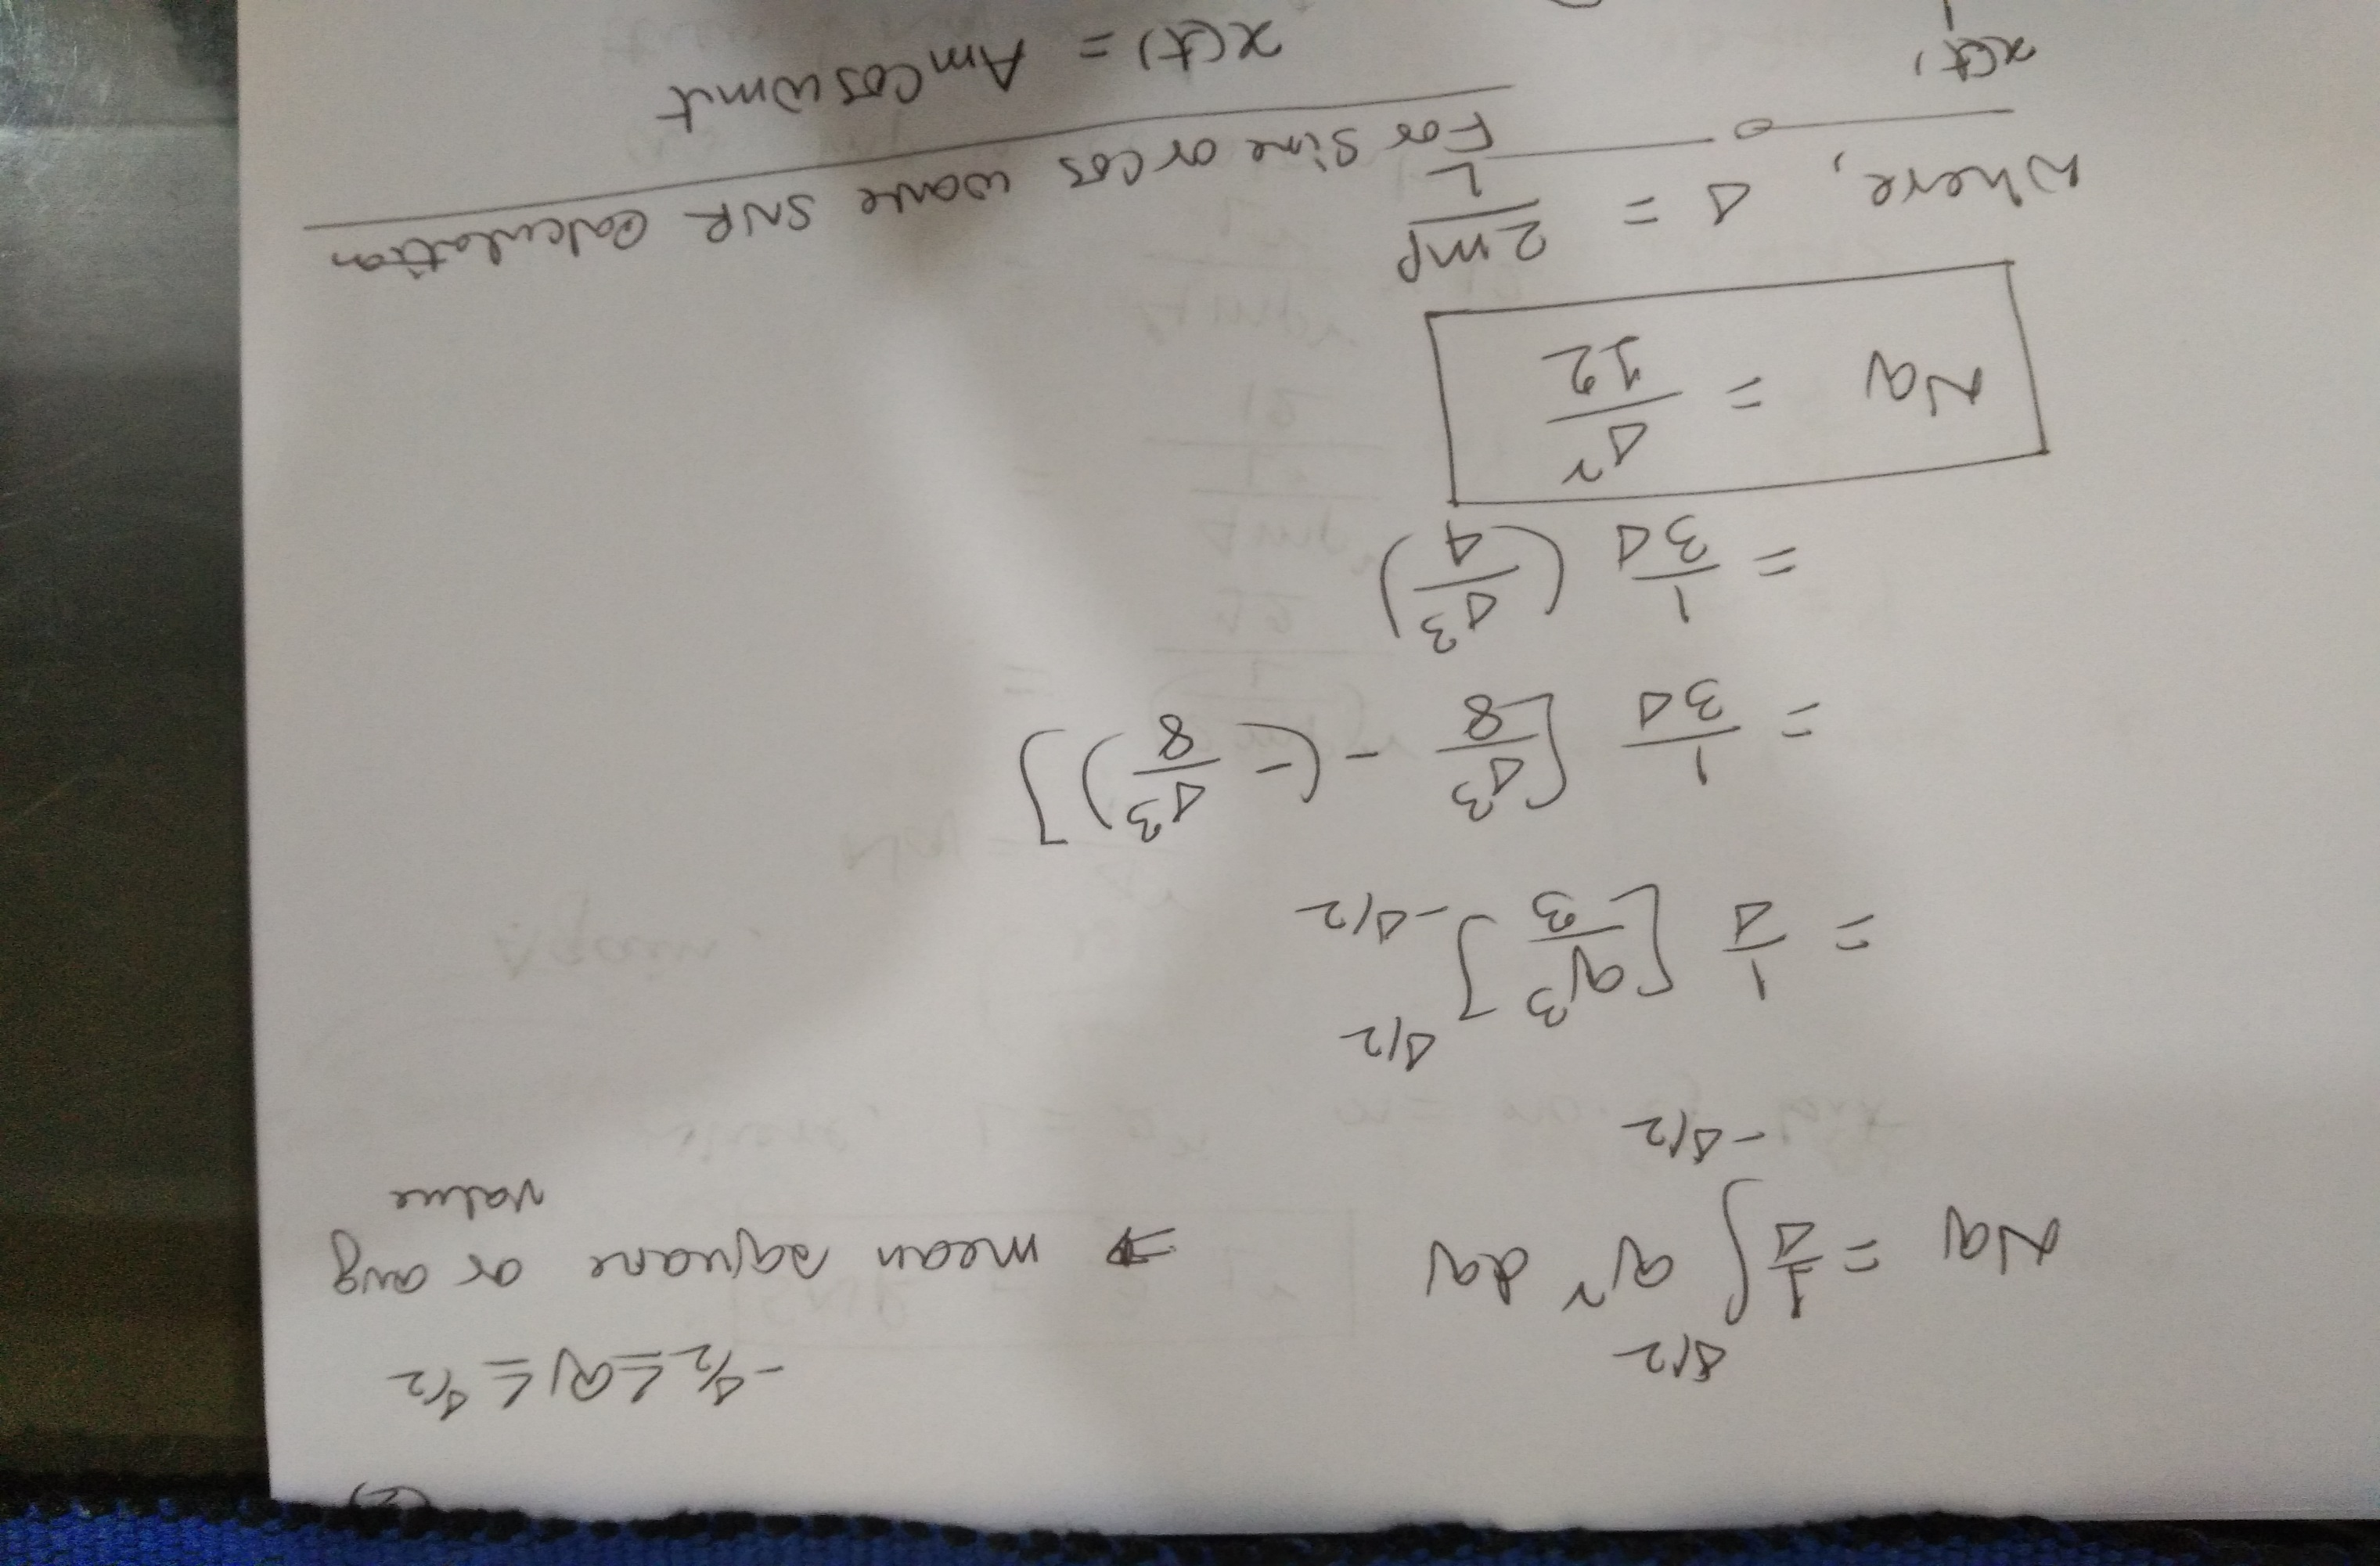 (2)
-Δ/2 ≤ q ≤ Δ/2
Nq = 1/Δ ∫_{-Δ/2}^{Δ/2} q² dq ⇒ mean square or avg
value
= 1/Δ [q³/3]_{-Δ/2}^{Δ/2}
= 1/3Δ [Δ³/8 - (-Δ³/8)]
= 1/3Δ (Δ³/4)
Nq = Δ²/12
Where, Δ = 2mp/L
For Sine or cos wave SNR Calculation
x(t) = Am Cos wmt
x(t)